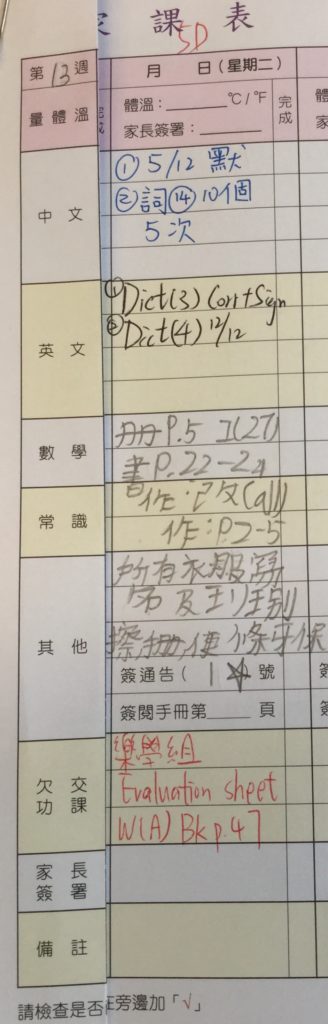 家課表
5D
第13週
月 日(星期二)
量體溫
體溫:______°C/°F
完成
家長簽署:______
中文
① 5/12 默
②詞⑭ 10個
5次
英文
① Dict(3) Corr+Sign
② Dict(4) 12/12
數學
冊P.5 工(27)
書P.22-24
常識
作:已改(all)
作:P.2-5
其他
所有衣服寫
簽通告( 1 ☆ 號
簽閱手冊第____頁
欠交功課
樂學組
Evaluation sheet
W(A) Bk p.47
家長簽署
備註
請檢查是否
旁邊加「√」